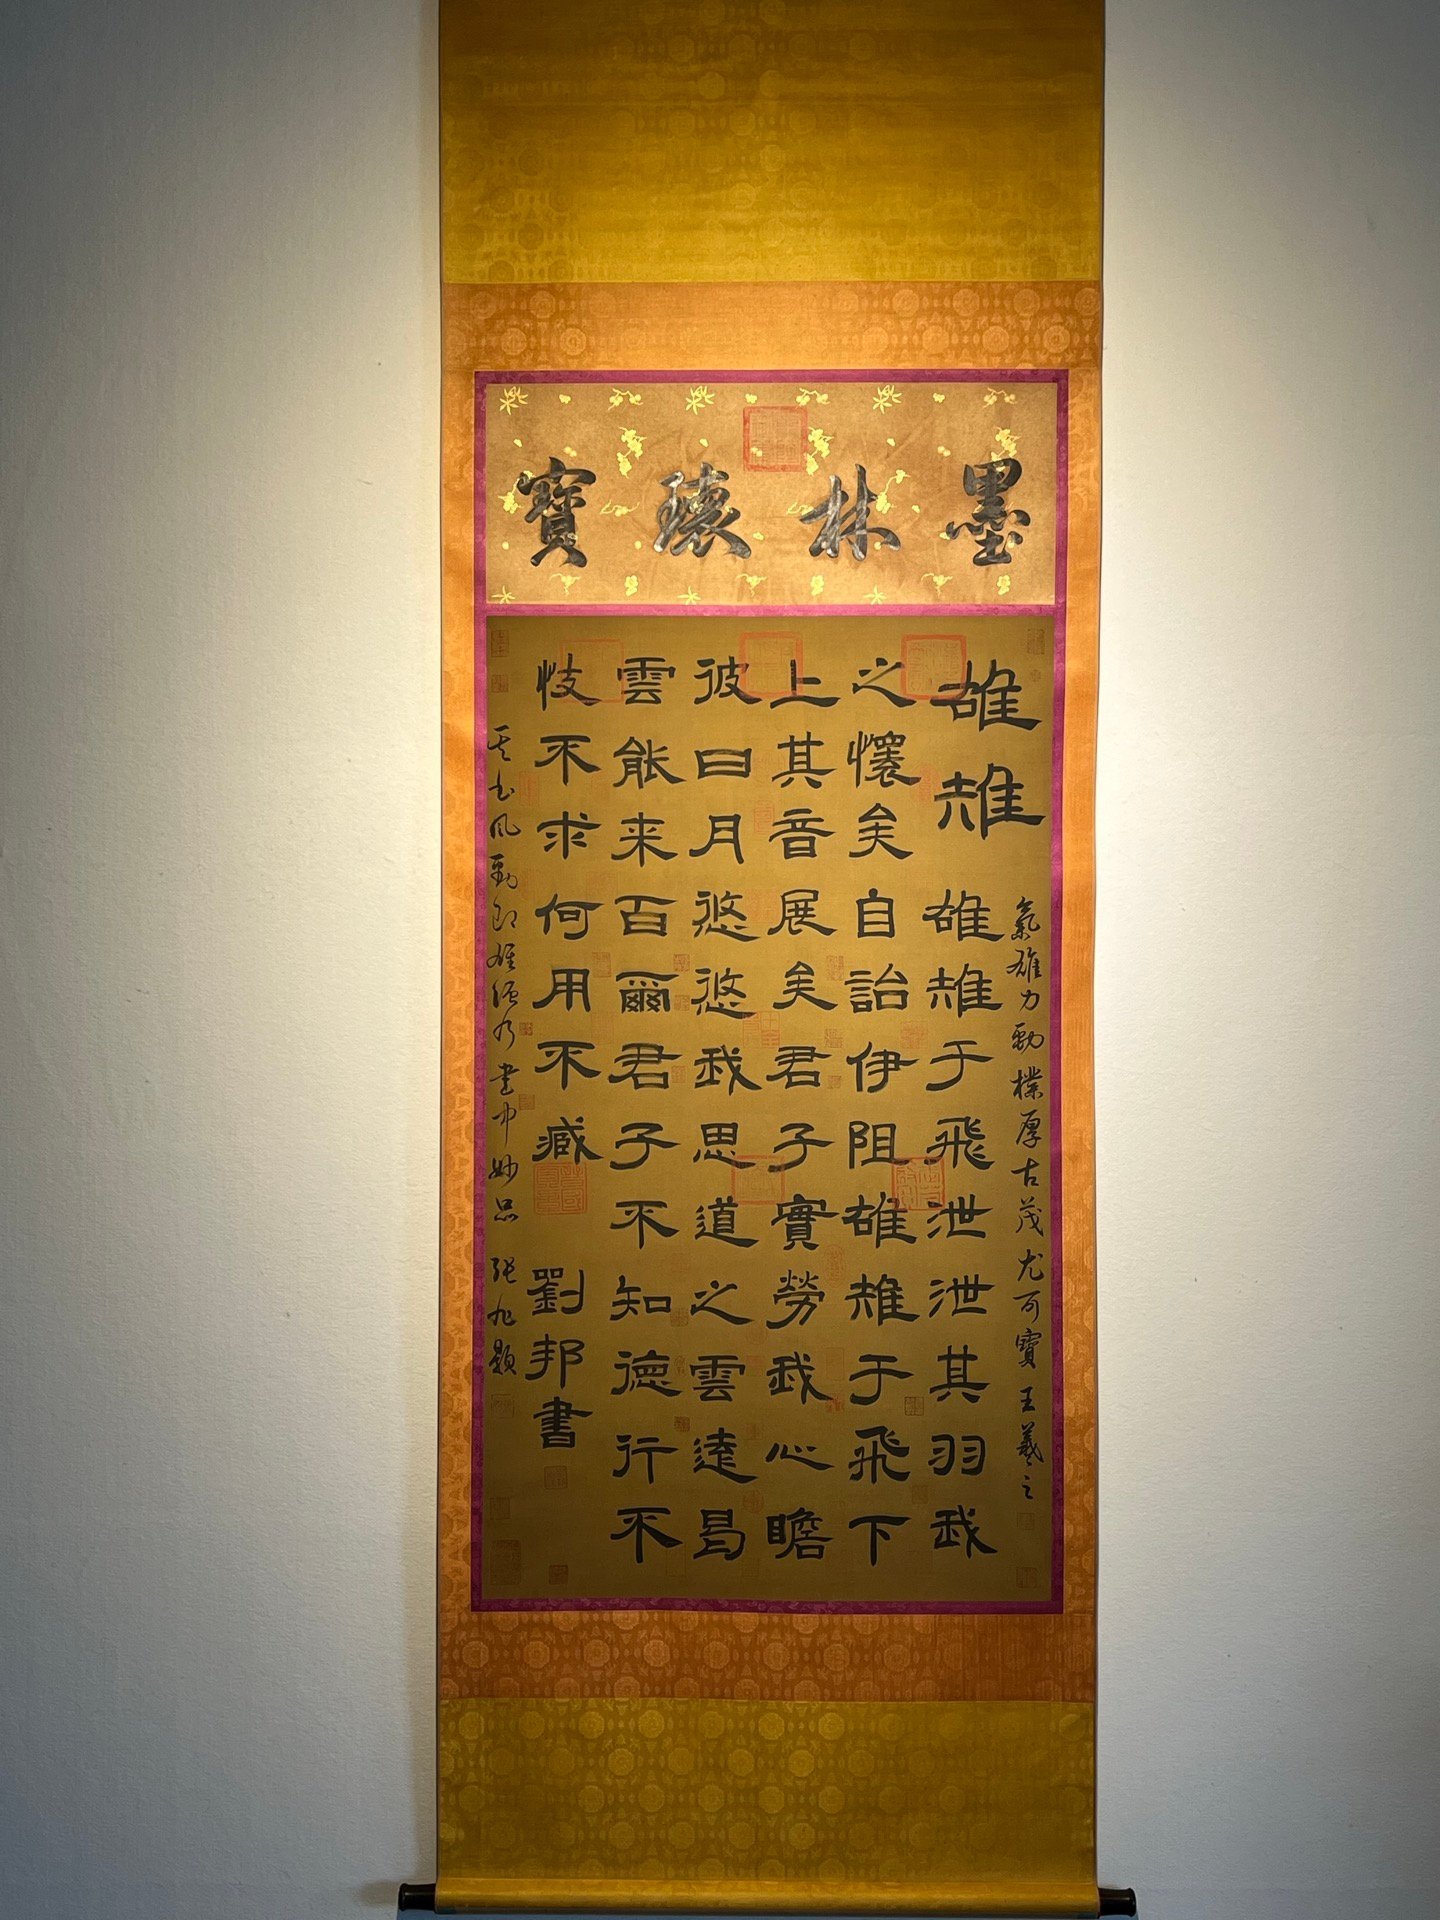 墨林瓌寶
雄雉
氣雄力勁樸厚古茂尤可寶王羲之
雄雉于飛泄泄其羽我
之懷矣自詒伊阻雄雉于飛下
上其音展矣君子實勞我心瞻
彼日月悠悠我思道之雲遠曷
雲能来百爾君子不知德行不
忮不求何用不臧
劉邦書
其書風勁郎雄強乃書中妙品張旭題